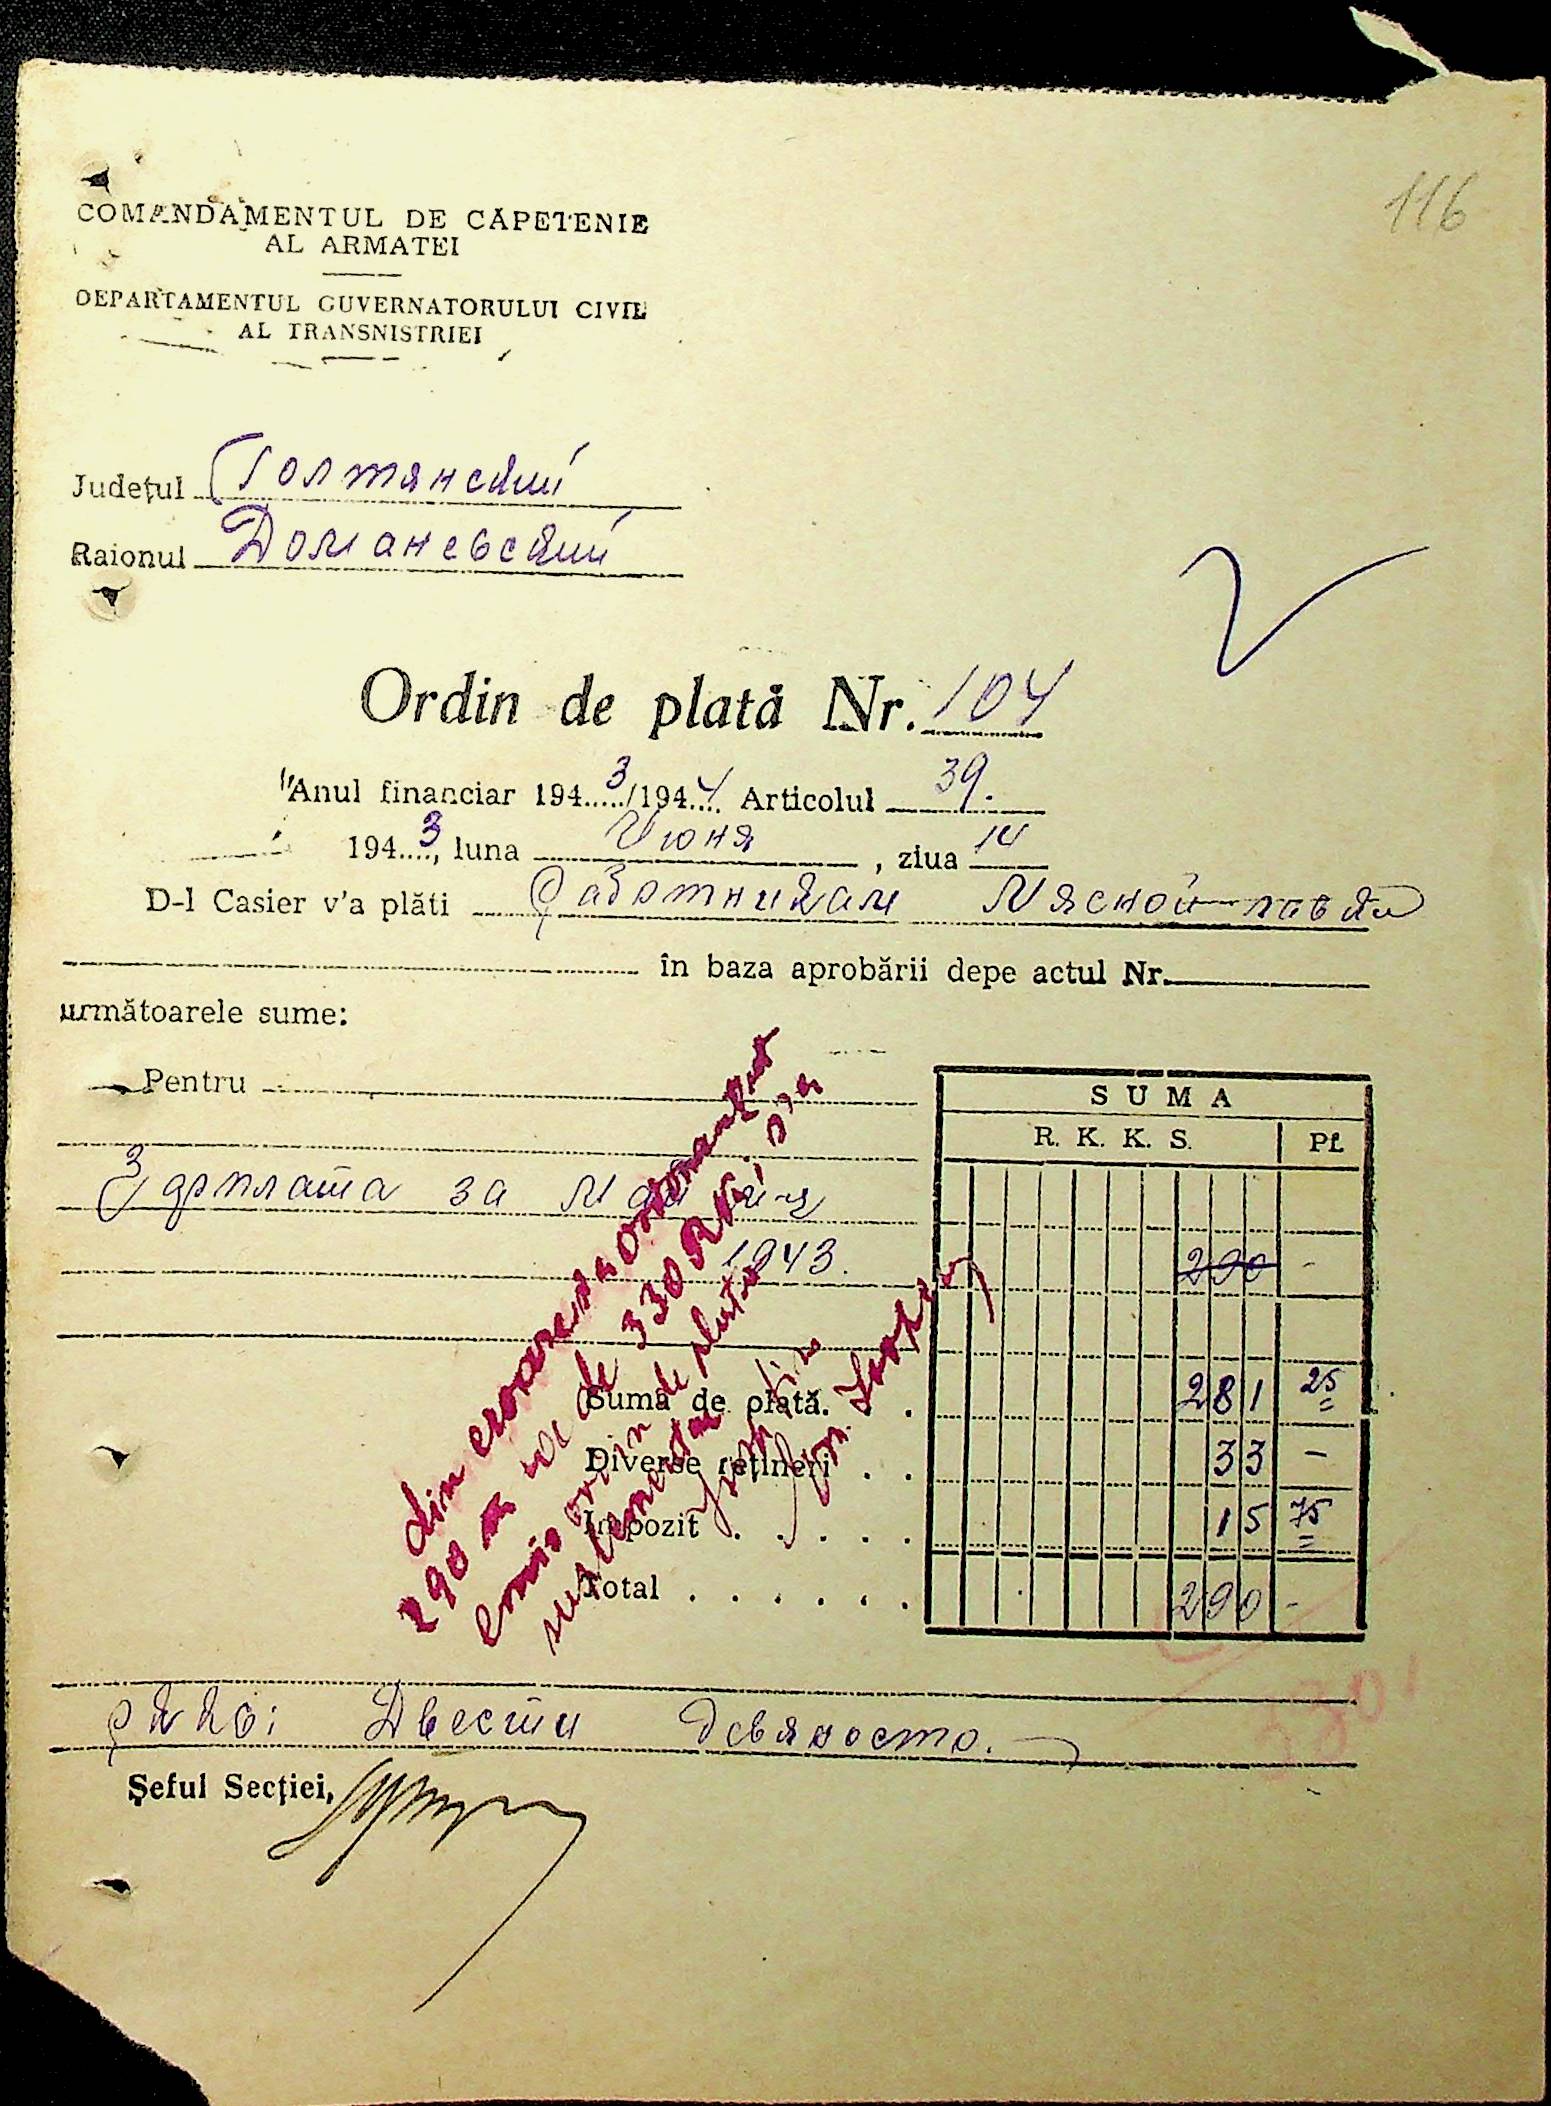 116
COMANDAMENTUL DE CĂPETENIE
AL ARMATEI
DEPARTAMENTUL GUVERNATORULUI CIVIL
AL TRANSNISTRIEI
Județul Голтянский
Raionul Доманевский
Ordin de plată Nr. 104
Anul financiar 194 3/194 4 Articolul 39.
194 3, luna Июня, ziua 14
D-l Casier v'a plăti Работникам Мясной лавки
în baza aprobării depe actul Nr.
următoarele sume:
Pentru
SUMA
R. K. K. S. Pf.
Зарплата за май м-ц
1943. 290 -
Suma de plată. . . 281 25
Diverse rețineri . . 33 -
Impozit . . . . . 15 75
Total . . . . . . 290 -
din eroare s'a ordonanțat
290 în loc de 330 RK. s'a
emis ordin de plată
suplimentar
330
рккс: Двести девяносто.
Șeful Secției,